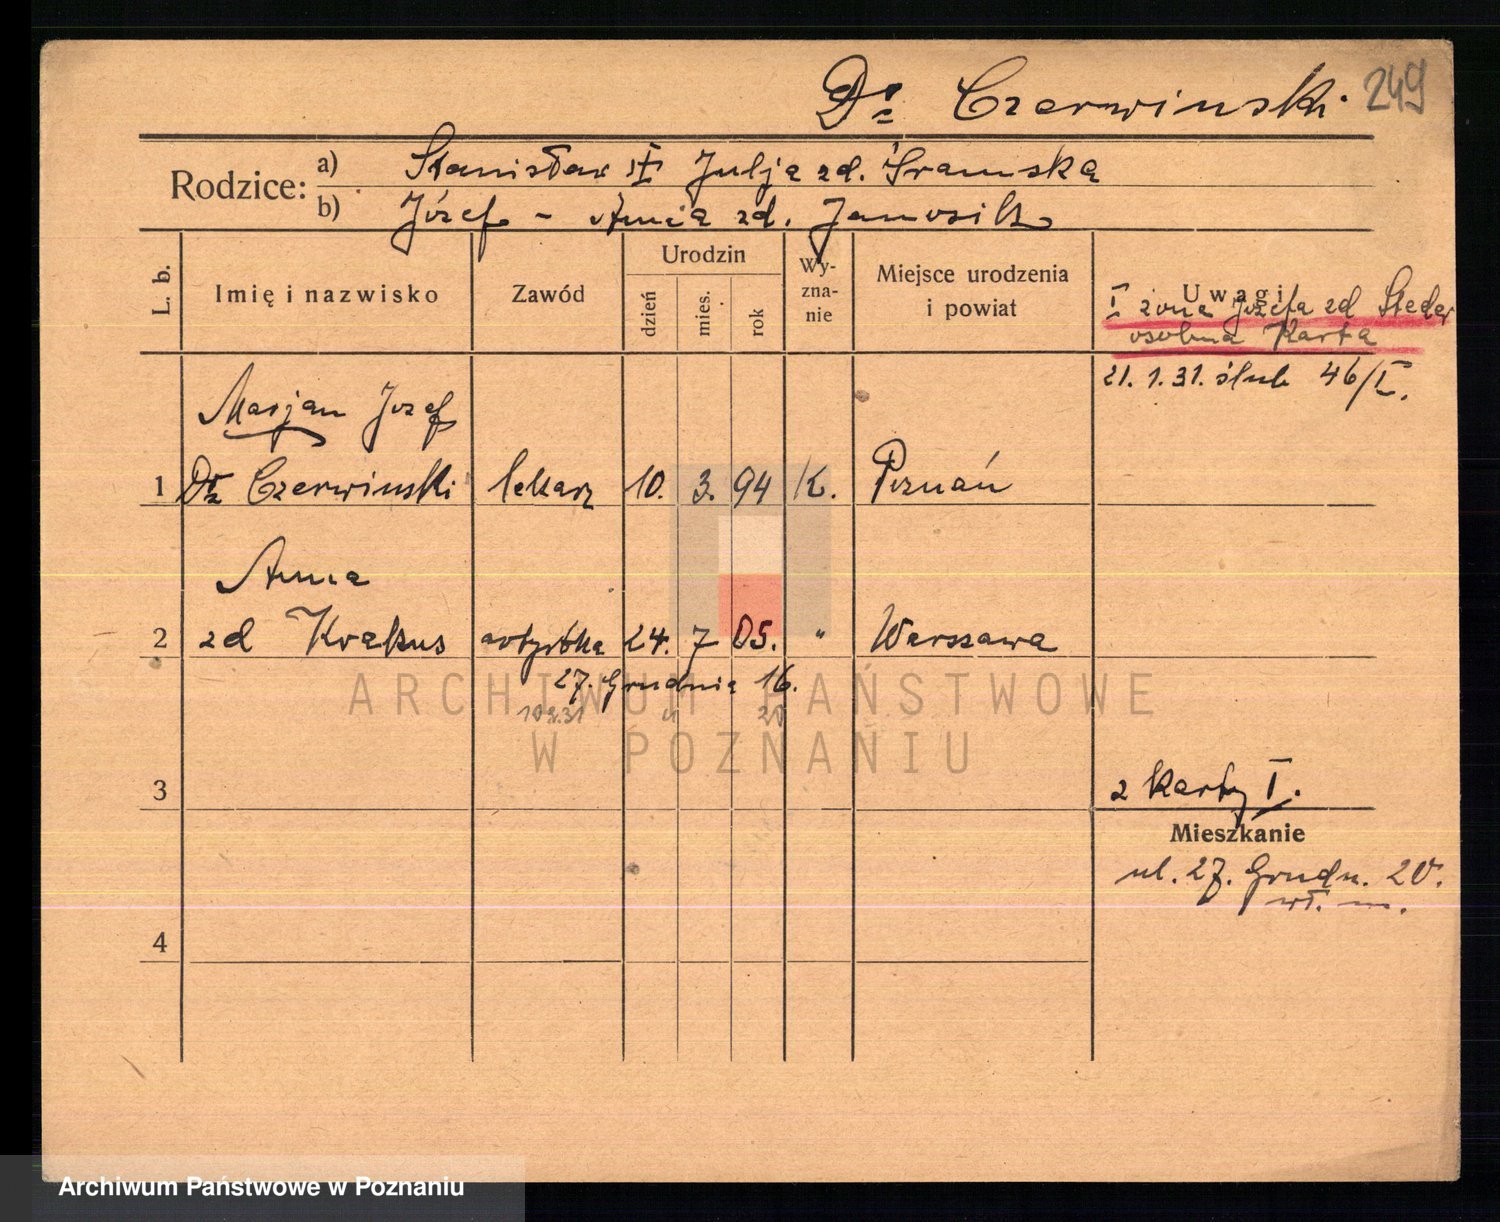 Dr Czerwinski. 249
Rodzice: a) Stanisław Julja zd. Sramska
b) Józef - Anna zd. Janosik
L. b.
Imię i nazwisko
Zawód
Urodzin
dzień
mies.
rok
Wy-
zna-
nie
Miejsce urodzenia
i powiat
Uwagi
I żona Józefa zd
osobna Karta
21. 1. 31. ślub 46/I.
Marjan Józef
1 Dr Czerwinski lekarz 10. 3. 94 K. Poznań
Anna
2 zd Krakus artystka 24. 7 05. " Warszawa
27. Grudnia 16.
20
3
2 Karty I.
Mieszkanie
ul. 27. Grudn. 20.
4
ARCHIWUM PAŃSTWOWE
W POZNANIU
Archiwum Państwowe w Poznaniu